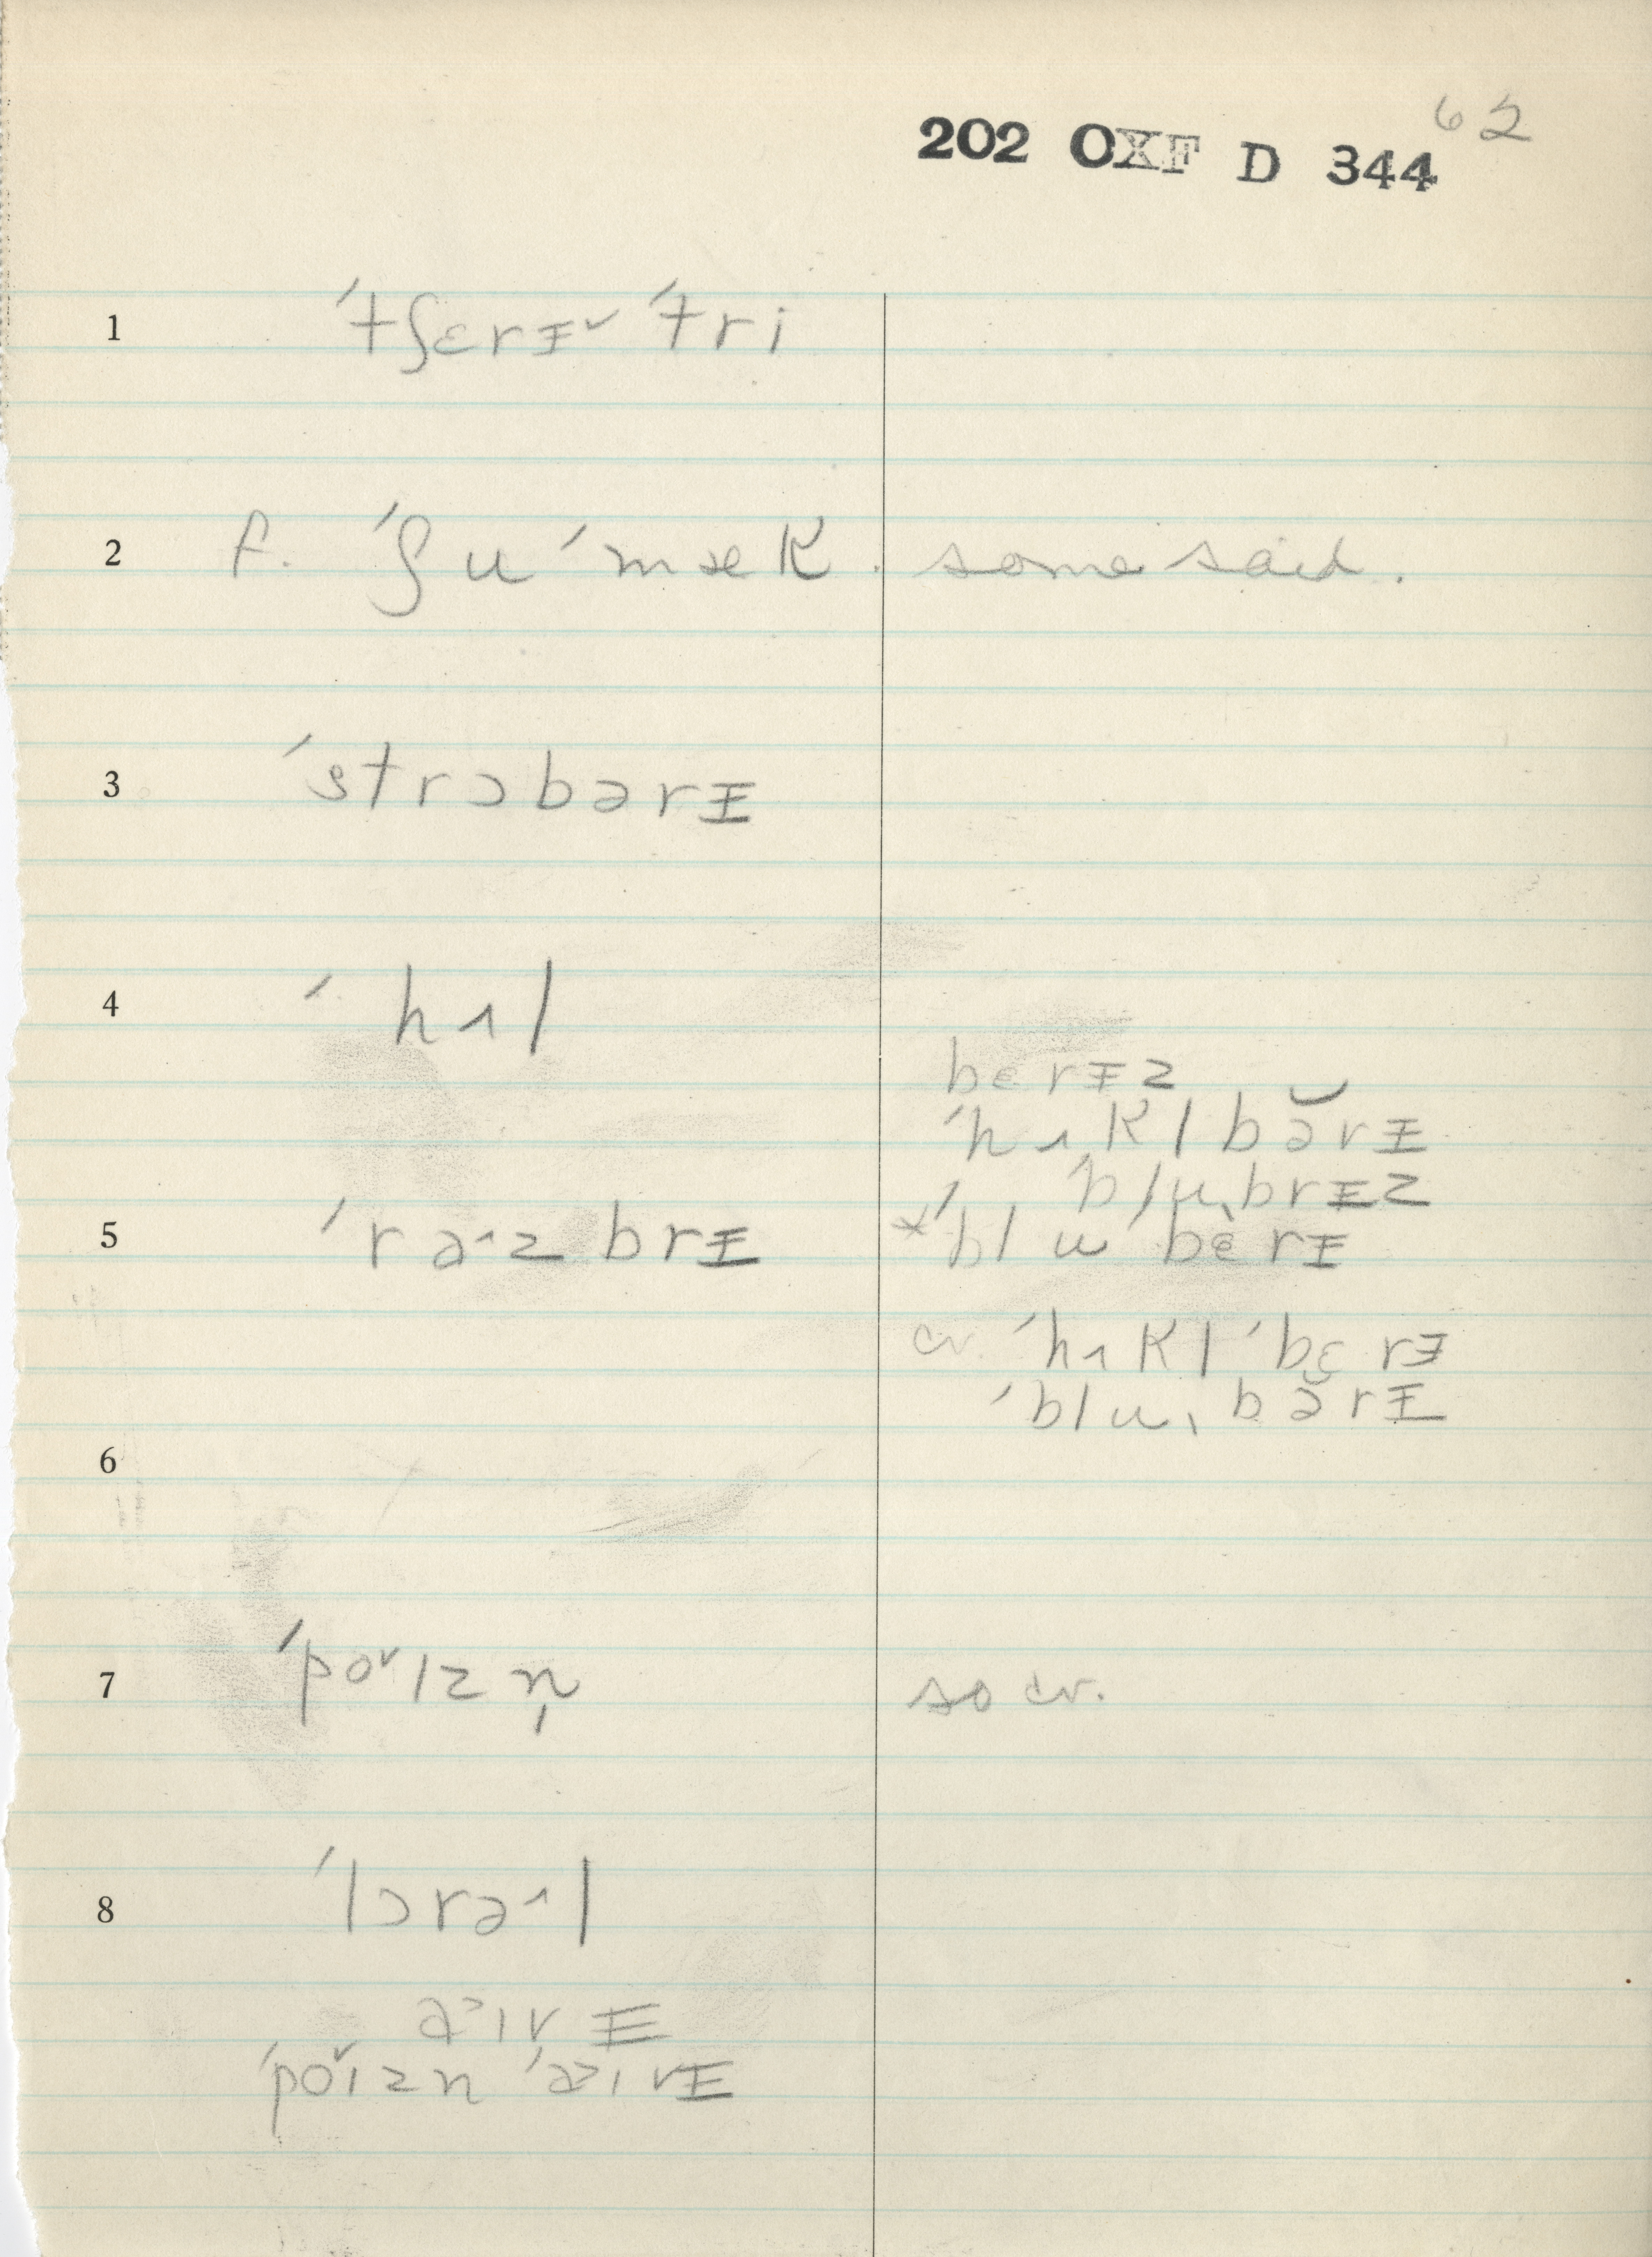 62
202 OXF D 344
1 ˈtʃɛrɪ̵˅ ˈtri
2 f. ˈʃu ˈmæk. some said.
3 ˈstrɔbərɪ̵
4 ˈhʌl
bɛrɪ̵z
ˈhʌklbə̆rɪ̵
ˈblu̩brɪ̵z
5 ˈraˑ^zbrɪ̵ *ˈblu ˈbɛ̀rɪ̵
cv. ˈhʌkl ˈbɛrɪ̵
ˈblu ˌbə̆rɪ̵
6
7 ˈpo˅ɪzn̩ so cv.
8 ˈlɔrə^l
a˃ɪvɪ̵
ˈpo˅ɪzn ˈa˃ɪvɪ̵